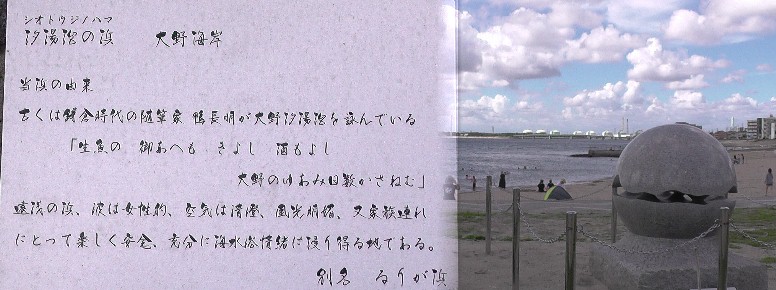 シオトウジノハマ
汐湯治の浜 大野海岸
当浜の由来
古くは鎌倉時代の随筆家 鴨長明が大野汐湯治を詠んでいる
「生魚の 御あへも きよし 酒もよし
大野のゆあみ日数かさねむ」
遠浅の浜、波は女性的、空気は清澄、風光明媚、又家族連れ
にとって楽しく安全、充分に海水浴情緒に浸り得る地である。
別名 るりが浜